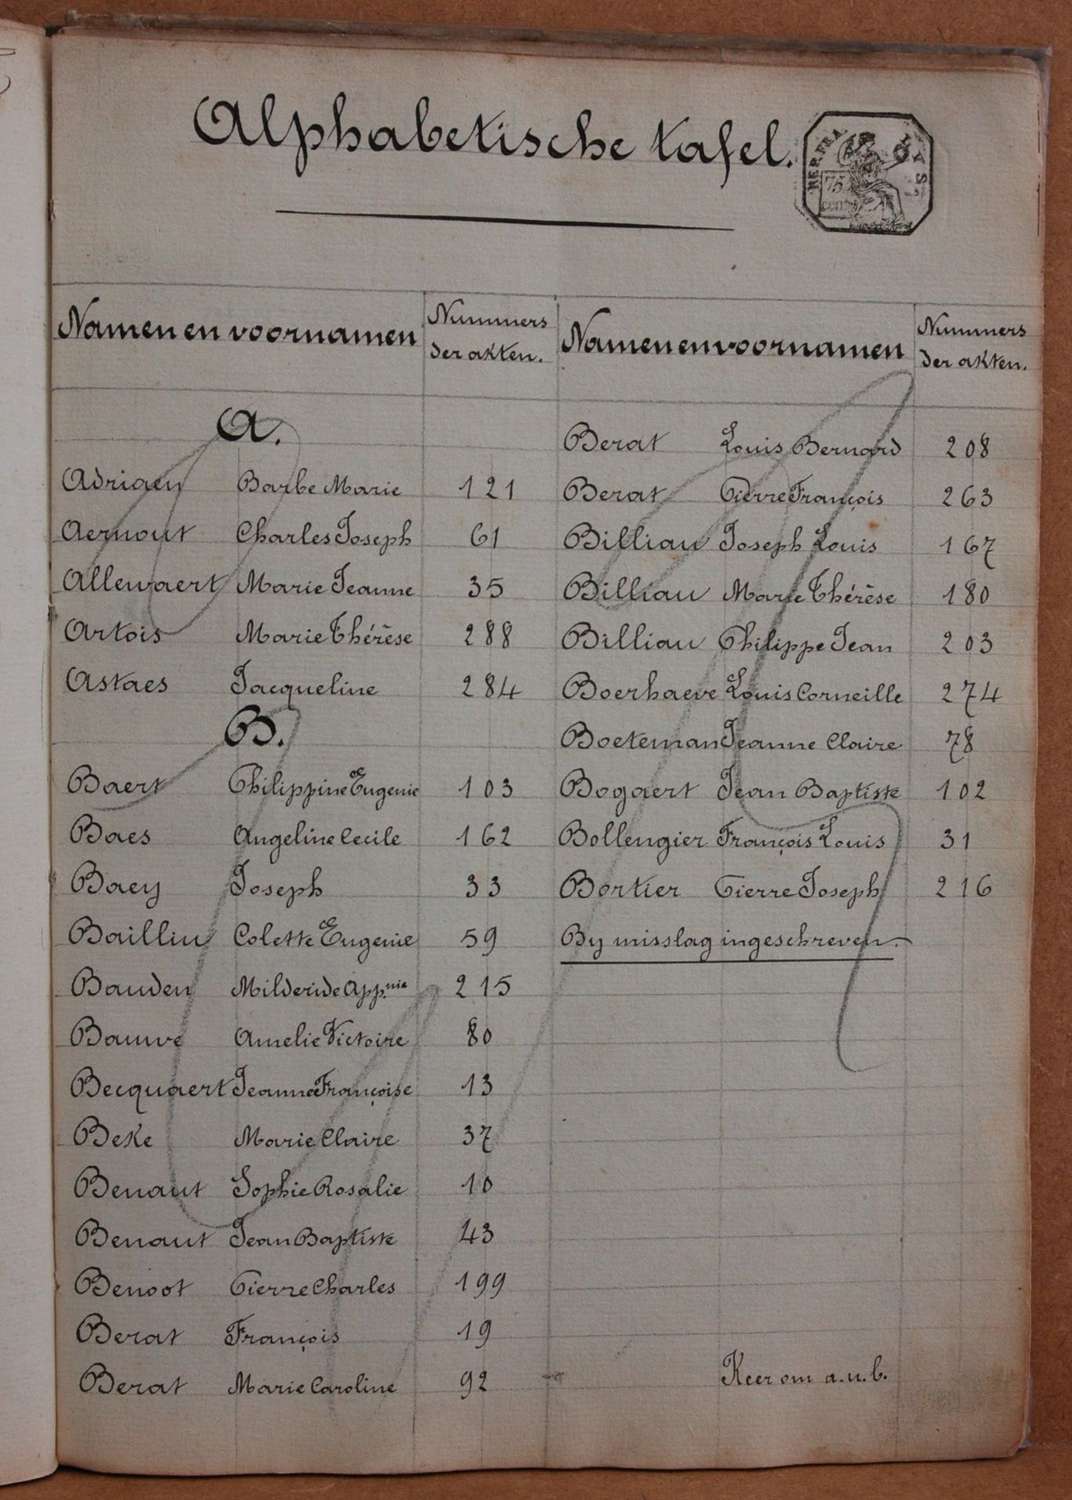 Alphabetische tafel.
REP.FRA
75
cent
Namen en voornamen Nummers der akten.
A.
Adriaen Barbe Marie 121
Aernout Charles Joseph 61
Allewaert Marie Jeanne 35
Artois Marie Thérèse 288
Astaes Jacqueline 284
B.
Baert Philippine Eugenie 103
Baes Angeline Cecile 162
Baey Joseph 33
Bailliu Colette Eugenie 59
Bauden Milderide App.nie 215
Bauwe Amelie Victoire 80
Becquaert Jeanne Françoise 13
Beke Marie Claire 37
Benaut Sophie Rosalie 10
Benaut Jean Baptiste 43
Benoot Pierre Charles 199
Berat François 19
Berat Marie Caroline 92
Namen en voornamen Nummers der akten.
Berat Louis Bernard 208
Berat Pierre François 263
Billiau Joseph Louis 167
Billiau Marie Thérèse 180
Billiau Philippe Jean 203
Boerhaeve Louis Corneille 274
Boeteman Jeanne Claire 78
Bogaert Jean Baptiste 102
Bollengier François Louis 31
Bortier Pierre Joseph 216
By misslag ingeschreven.
Keer om a.u.b.